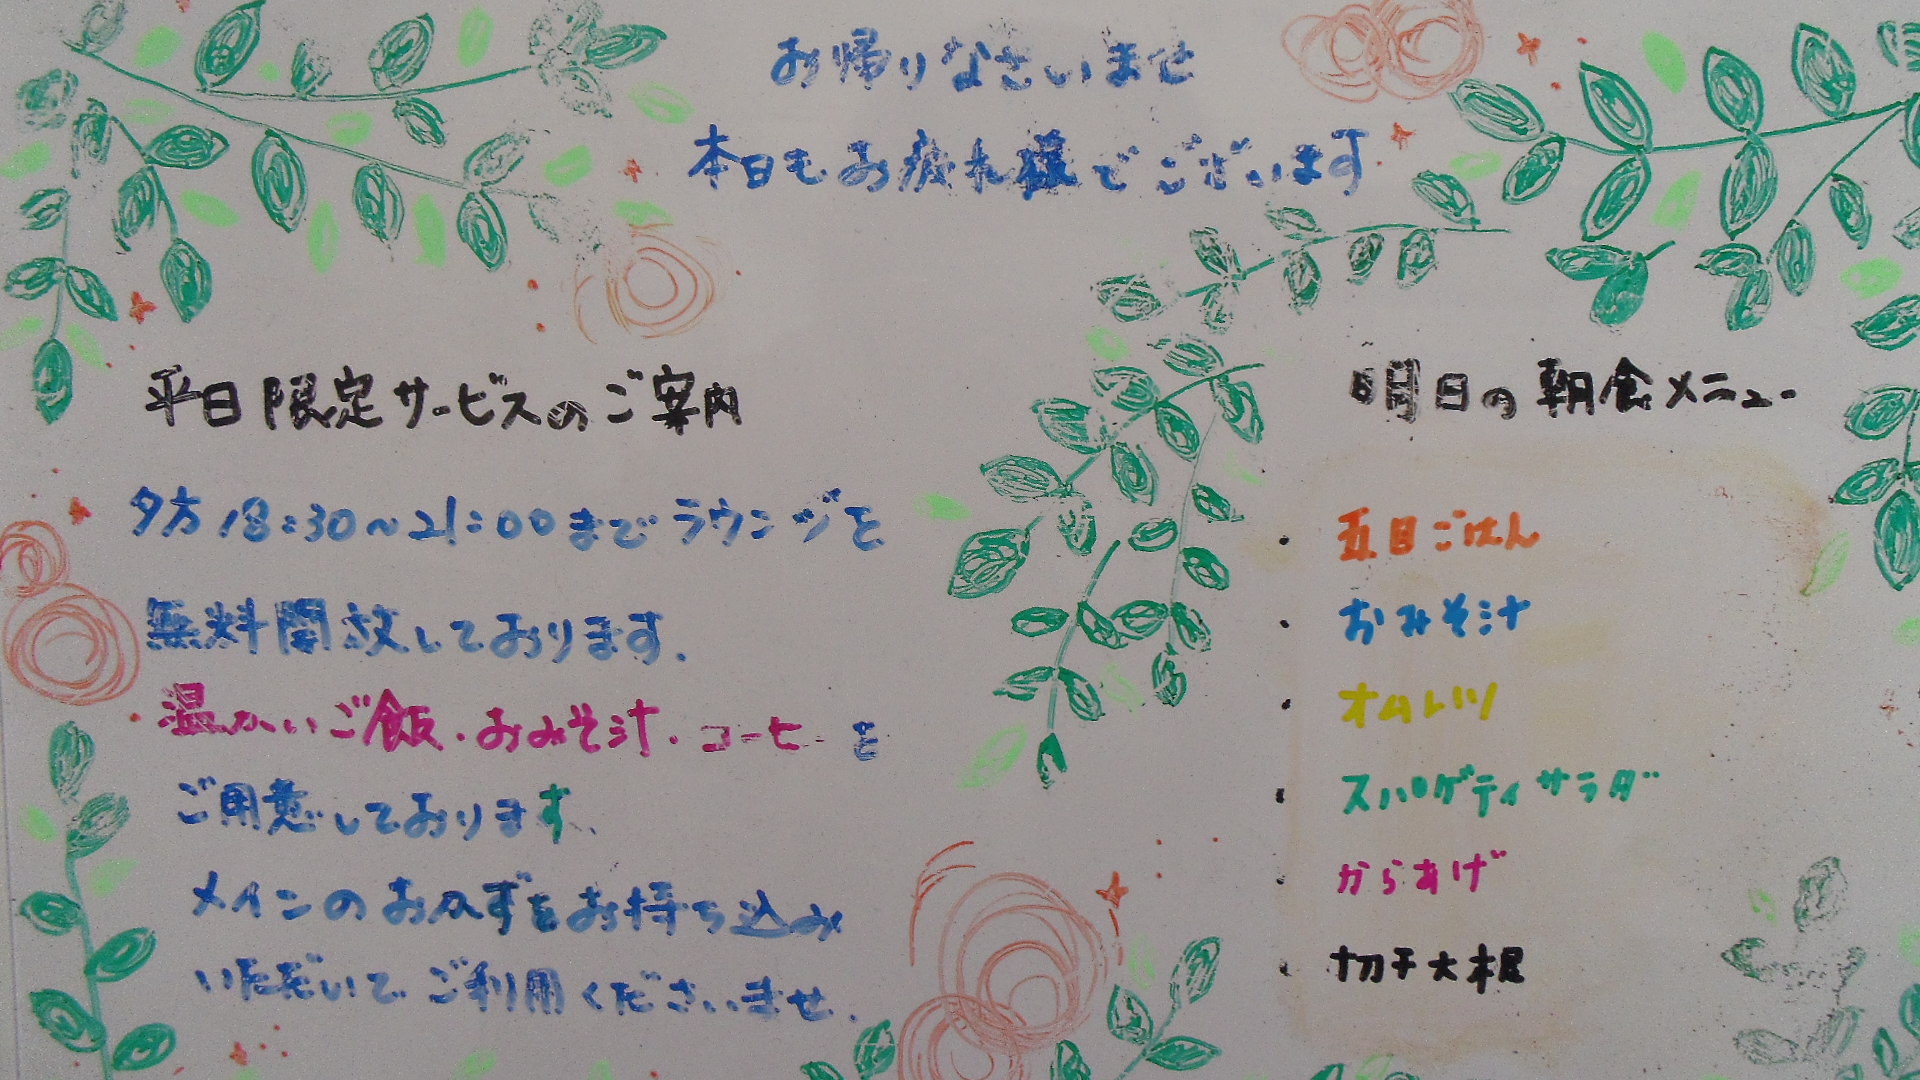 お帰りなさいませ
本日もお疲れ様でございます
平日限定サービスのご案内
夕方18:30～21:00までラウンジを
無料開放しております.
温かいご飯・おみそ汁・コーヒーを
ご用意しております.
メインのおかずをお持ち込み
いただいてご利用くださいませ.
明日の朝食メニュー
・五目ごはん
・おみそ汁
・オムレツ
・スパゲティサラダ
・からあげ
・切干大根